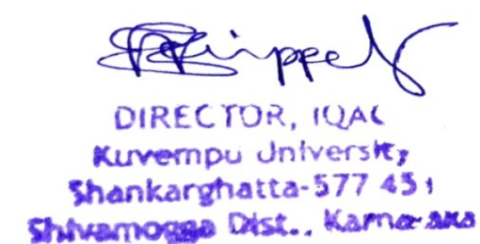 DIRECTOR, IQAC
Kuvempu University
Shankarghatta-577 451
Shivamogga Dist., Karnataka